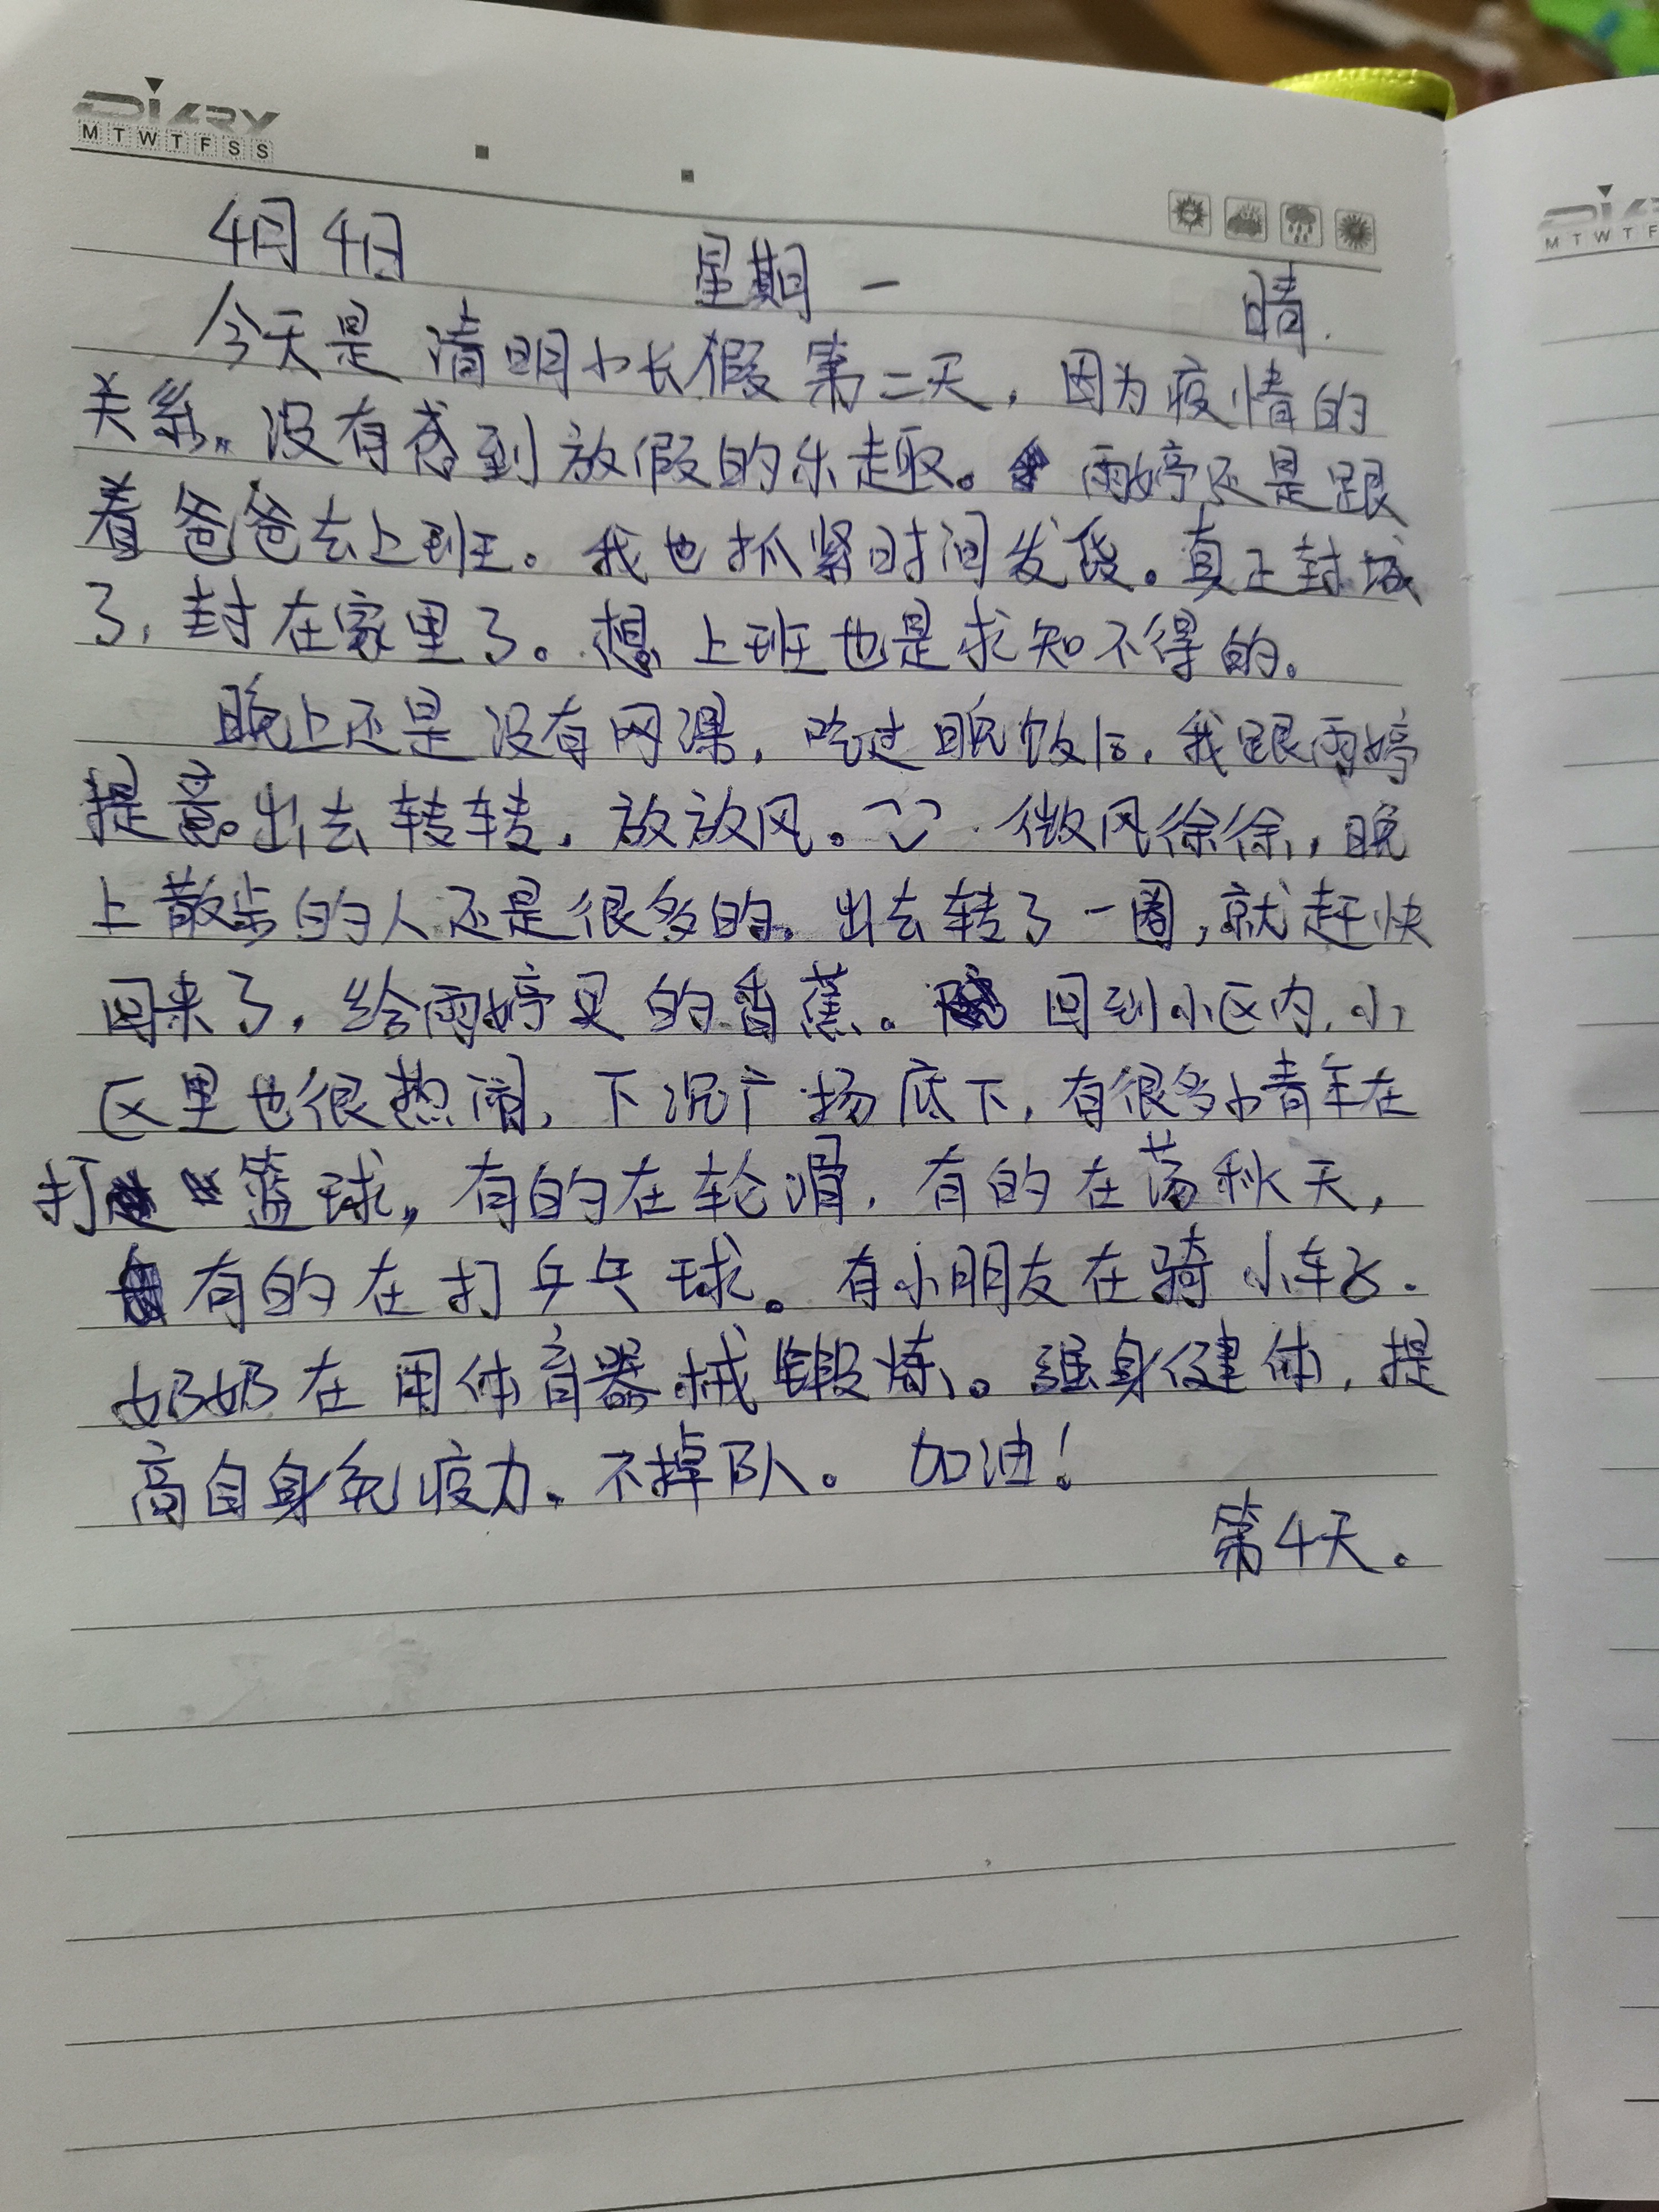 DIARY
M T W T F S S
4月4日 星期一 晴.
今天是清明小长假第二天,因为疫情的
关系。没有感到放假的乐趣。雨婷还是跟
着爸爸去上班。我也抓紧时间发货。真正封城
了,封在家里了。想上班也是求知不得的。
晚上还是没有网课,吃过晚饭后,我跟雨婷
提意。出去转转,放放风。微风徐徐,晚
上散步的人还是很多的。出去转了一圈,就赶快
回来了,给雨婷买的香蕉。回到小区内,小
区里也很热闹,下沉广场底下,有很多小青年在
打篮球,有的在轮滑,有的在荡秋天,
有的在打乒乓球。有小朋友在骑小车飞.
奶奶在用体育器械锻炼。强身健体,提
高自身免疫力、不掉队。加油!
第4天。
DIA
M T W T F